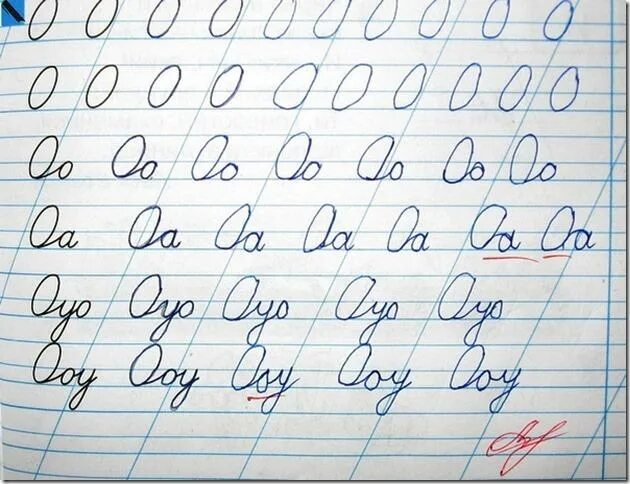 О О О О О О О О О О
О О О О О О О О О О
Оо Оо Оо Оо Оо Оо Оо
Оа Оа Оа Оа Оа Оа Оа
Оуо Оуо Оуо Оуо Оуо
Ооу Ооу Ооу Ооу Ооу